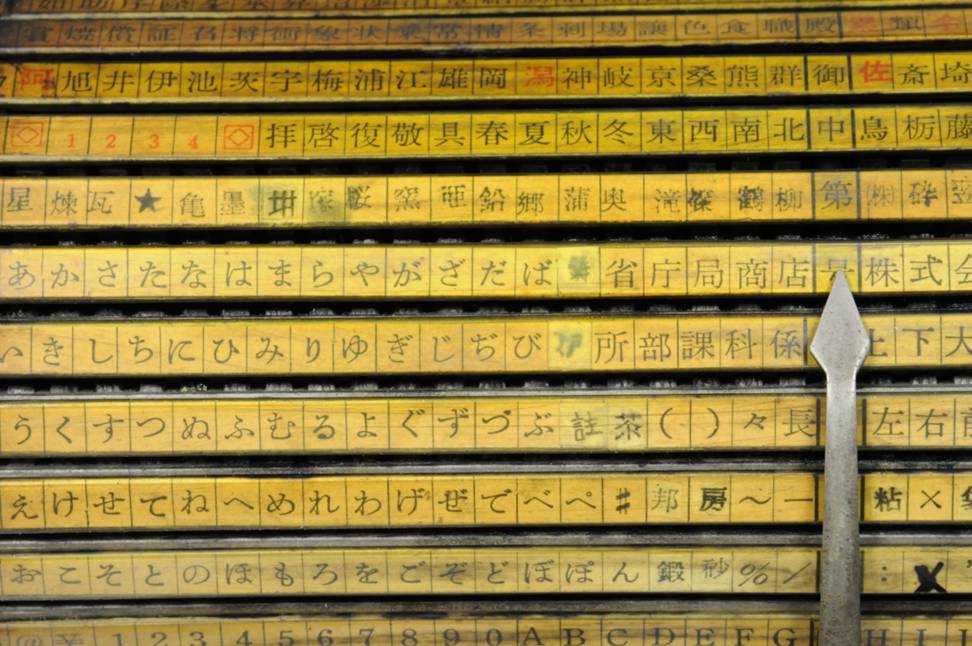 賞 焼 償 証 召 将 衝 象 状 乗 常 情 条 剰 場 譲 色 食 職 殿
阿 旭 井 伊 池 茨 宇 梅 浦 江 雄 岡 潟 神 岐 京 桑 熊 群 御 佐 斎 埼
1 2 3 4 拝 啓 復 敬 具 春 夏 秋 冬 東 西 南 北 中 鳥 栃 藤
星 煉 瓦 ★ 亀 墨 坩 桜 窯 亜 鉛 郷 蒲 奥 滝 篠 鶴 柳 第 ㈱ 砕
あ か さ た な は ま ら や が ざ だ ば 省 庁 局 商 店 号 株 式 会
い き し ち に ひ み り ゆ ぎ じ ぢ び 所 部 課 科 係 上 下 大
う く す つ ぬ ふ む る よ ぐ ず づ ぶ 註 茶 ( ) 々 長 左 右
え け せ て ね へ め れ わ げ ぜ で べ ぺ # 邦 房 ～ ー 粘 ×
お こ そ と の ほ も ろ を ご ぞ ど ぼ ぽ ん 鍛 砂 % / :
@ ¥ 1 2 3 4 5 6 7 8 9 0 A B C D E F G H I J